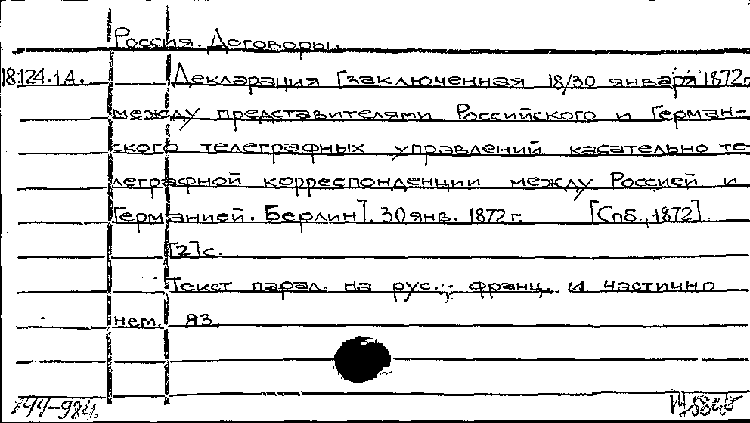 Россия. Договоры.
18.124.1.4. Декларация [заключенная 18/30 января 1872г.
между представителями Российского и Герман-
ского телеграфных управлений касательно те-
леграфной корреспонденции между Россией и
Германией. Берлин]. 30 янв. 1872 г. [Спб., 1872].
[2] с.
Текст парал. на рус., франц. и частично
нем. яз.